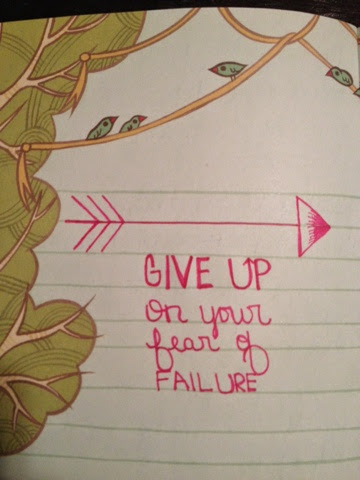 GIVE UP
on your
fear of
FAILURE